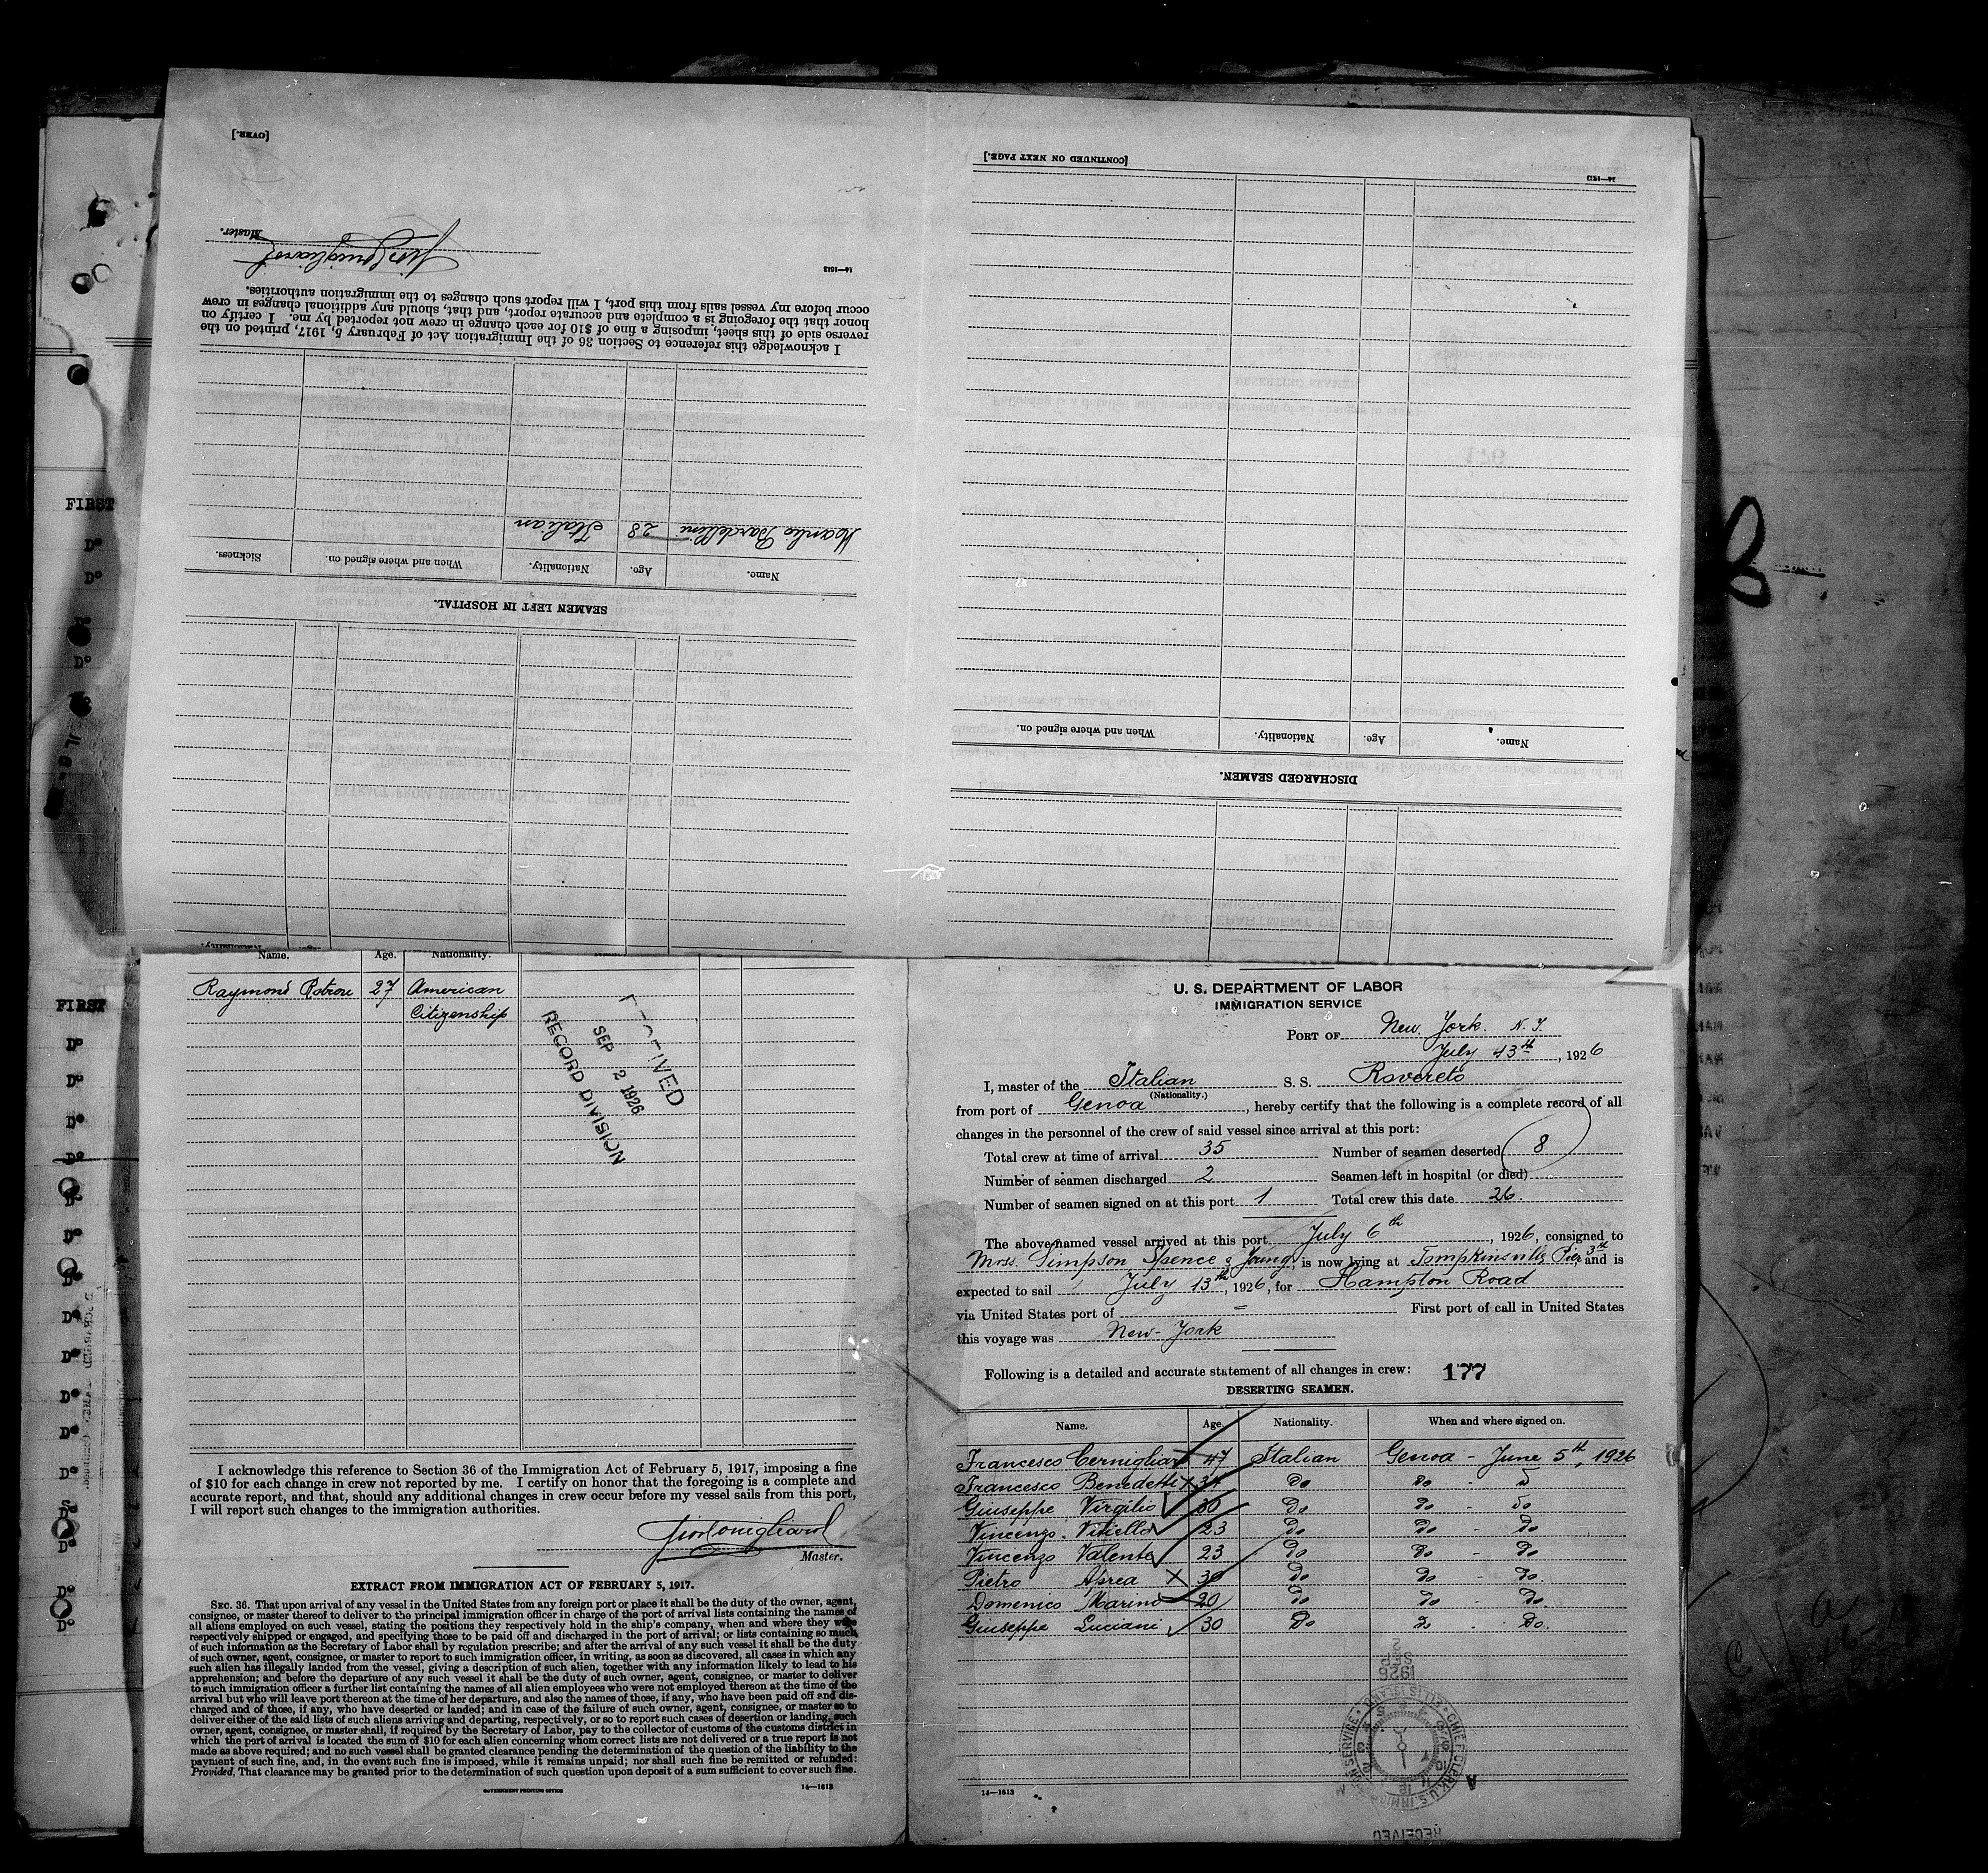 [OVER.]
Master.
14—1613
I acknowledge this reference to Section 36 of the Immigration Act of February 5, 1917, printed on the
reverse side of this sheet, imposing a fine of $10 for each change in crew not reported by me. I certify on
honor that the foregoing is a complete and accurate report, and that, should any additional changes in crew
occur before my vessel sails from this port, I will report such changes to the immigration authorities.
SEAMEN LEFT IN HOSPITAL.
Name. Age. Nationality. When and where signed on. Sickness.
Bardellini 28 Italian
[CONTINUED ON NEXT PAGE.]
14—1613
DISCHARGED SEAMEN.
Name. Age. Nationality. When and where signed on.
FIRST
Do
Do
Do
FIRST
Do
Do
Do
Do
Do
Do
Do
Do
Do
Do
Do
Do
Do
Do
Name. Age. Nationality.
Raymond 27 American
Citizenship
RECEIVED
SEP 2 1926
RECORD DIVISION
I acknowledge this reference to Section 36 of the Immigration Act of February 5, 1917, imposing a fine
of $10 for each change in crew not reported by me. I certify on honor that the foregoing is a complete and
accurate report, and that, should any additional changes in crew occur before my vessel sails from this port,
I will report such changes to the immigration authorities.
Master.
EXTRACT FROM IMMIGRATION ACT OF FEBRUARY 5, 1917.
SEC. 36. That upon arrival of any vessel in the United States from any foreign port or place it shall be the duty of the owner, agent,
consignee, or master thereof to deliver to the principal immigration officer in charge of the port of arrival lists containing the names of
all aliens employed on such vessel, stating the positions they respectively hold in the ship's company, when and where they were
respectively shipped or engaged, and specifying those to be paid off and discharged in the port of arrival; or lists containing so much
of such information as the Secretary of Labor shall by regulation prescribe; and after the arrival of any such vessel it shall be the duty
of such owner, agent, consignee, or master to report to such immigration officer, in writing, as soon as discovered, all cases in which any
such alien has illegally landed from the vessel, giving a description of such alien, together with any information likely to lead to his
apprehension; and before the departure of any such vessel it shall be the duty of such owner, agent, consignee, or master to deliver
to such immigration officer a further list containing the names of all alien employees who were not employed thereon at the time of the
arrival but who will leave port thereon at the time of her departure, and also the names of those, if any, who have been paid off and dis-
charged and of those, if any, who have deserted or landed; and in case of the failure of such owner, agent, consignee, or master so to
deliver either of the said lists of such aliens arriving and departing, respectively, or so to report such cases of desertion or landing, such
owner, agent, consignee, or master shall, if required by the Secretary of Labor, pay to the collector of customs of the customs district in
which the port of arrival is located the sum of $10 for each alien concerning whom correct lists are not delivered or a true report is not
made as above required; and no such vessel shall be granted clearance pending the determination of the question of the liability to the
payment of such fine, and, in the event such fine is imposed, while it remains unpaid; nor shall such fine be remitted or refunded:
Provided, That clearance may be granted prior to the determination of such question upon deposit of a sum sufficient to cover such fine.
GOVERNMENT PRINTING OFFICE 14—1613
U. S. DEPARTMENT OF LABOR
IMMIGRATION SERVICE
PORT OF New York. N. Y.
July 13th, 1926
I, master of the Italian S. S. Rovereto
(Nationality.)
from port of Genoa, hereby certify that the following is a complete record of all
changes in the personnel of the crew of said vessel since arrival at this port:
Total crew at time of arrival 35 Number of seamen deserted 8
Number of seamen discharged 2 Seamen left in hospital (or died)
Number of seamen signed on at this port 1 Total crew this date 26
The above-named vessel arrived at this port July 6th, 1926, consigned to
Mrss. Simpson Spence & Young, is now lying at Tompkinsville Pier 3th and is
expected to sail July 13th, 1926, for Hampton Road
via United States port of = First port of call in United States
this voyage was New-York
Following is a detailed and accurate statement of all changes in crew: 177
DESERTING SEAMEN.
Name. Age. Nationality. When and where signed on.
Francesco Cernigliar 47 Italian Genoa - June 5th, 1926
Francesco Benedetti X 34 Do Do
Giuseppe Virgilio 30 Do Do - Do
Vincenzo Vitiello 23 Do Do - Do
Vincenzo Valente 23 Do Do - Do
Pietro Abrea X 30 Do Do - Do.
Domenico Marino 20 Do Do - Do.
Giuseppe Luciani 30 Do Do - Do.
2
SEP
1926
14—1613
RECEIVED
8